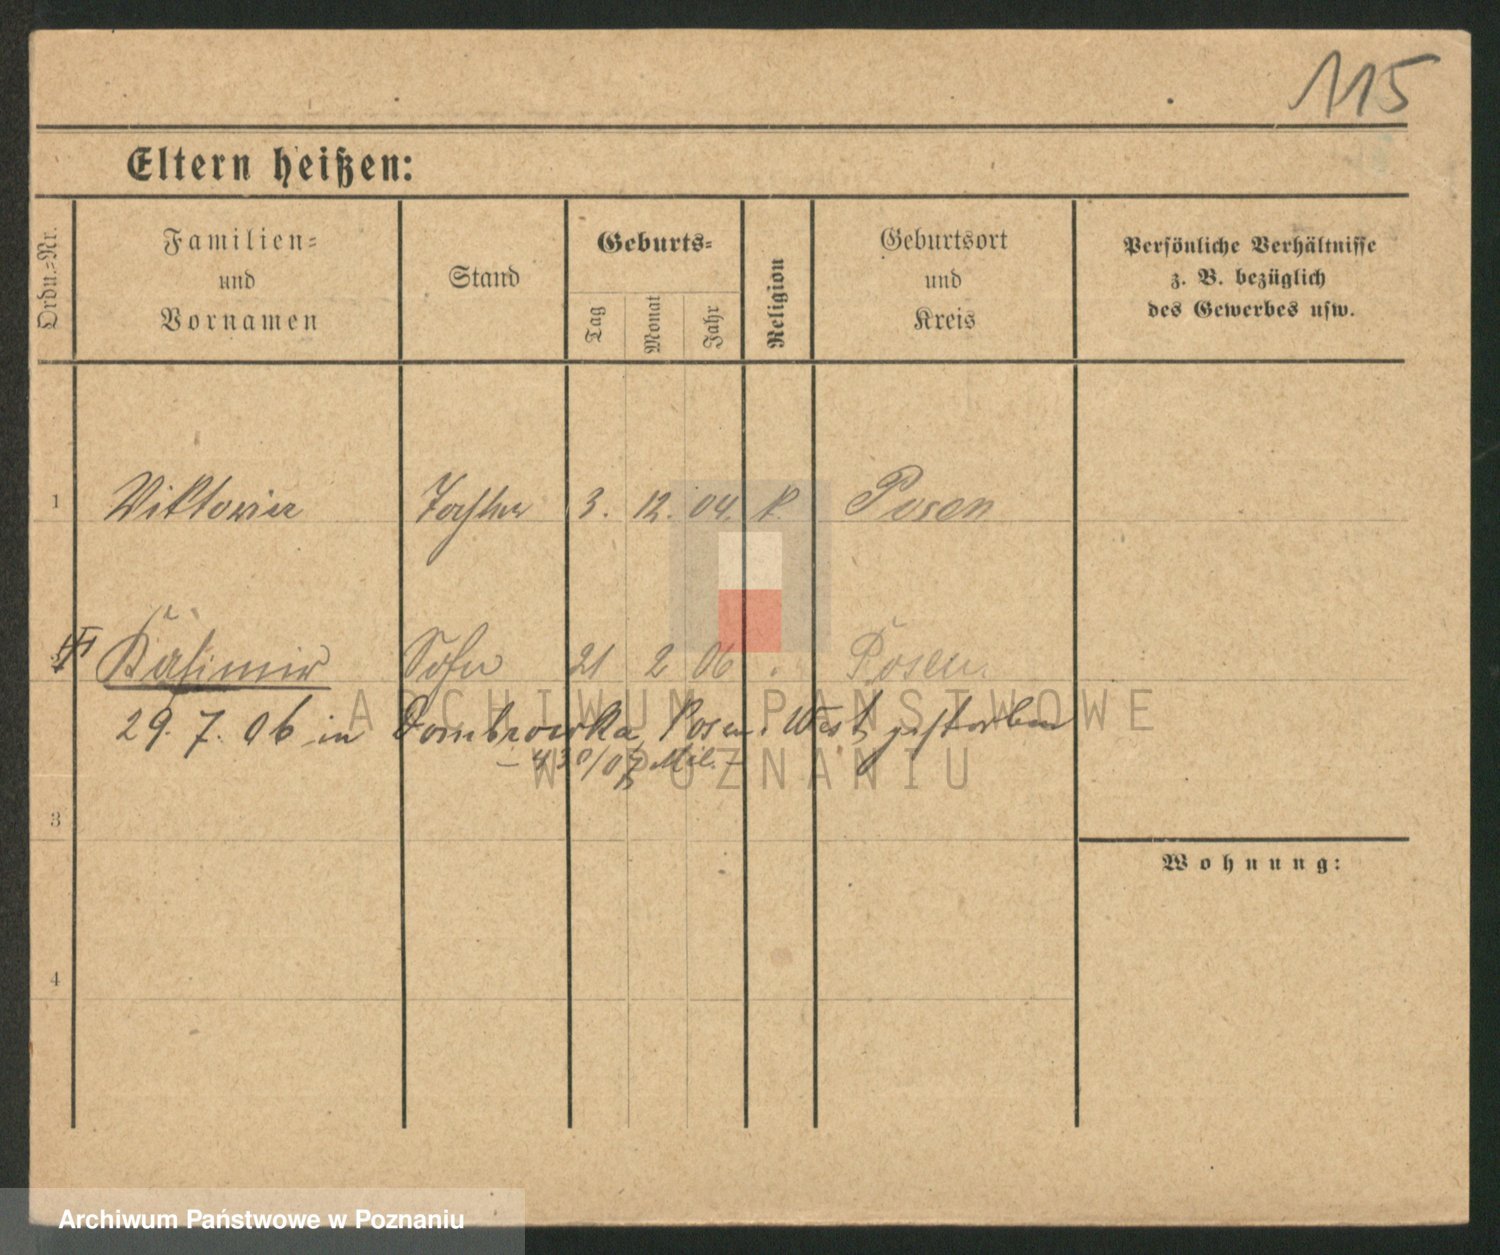 115
Eltern heißen:
Ordn.=Nr.
Familien=
und
Vornamen
Stand
Geburts=
Tag
Monat
Jahr
Religion
Geburtsort
und
Kreis
Persönliche Verhältnisse
z. B. bezüglich
des Gewerbes usw.
1 Viktoria Tochter 3. 12. 04. k. Posen
Kasimir Sohn 21 2 06 . Posen.
29. 7. 06 in Dombrowka, Posen-West, gestorben
– 430/07 Mil. –
3
Wohnung:
4
ARCHIWUM PAŃSTWOWE
W POZNANIU
Archiwum Państwowe w Poznaniu